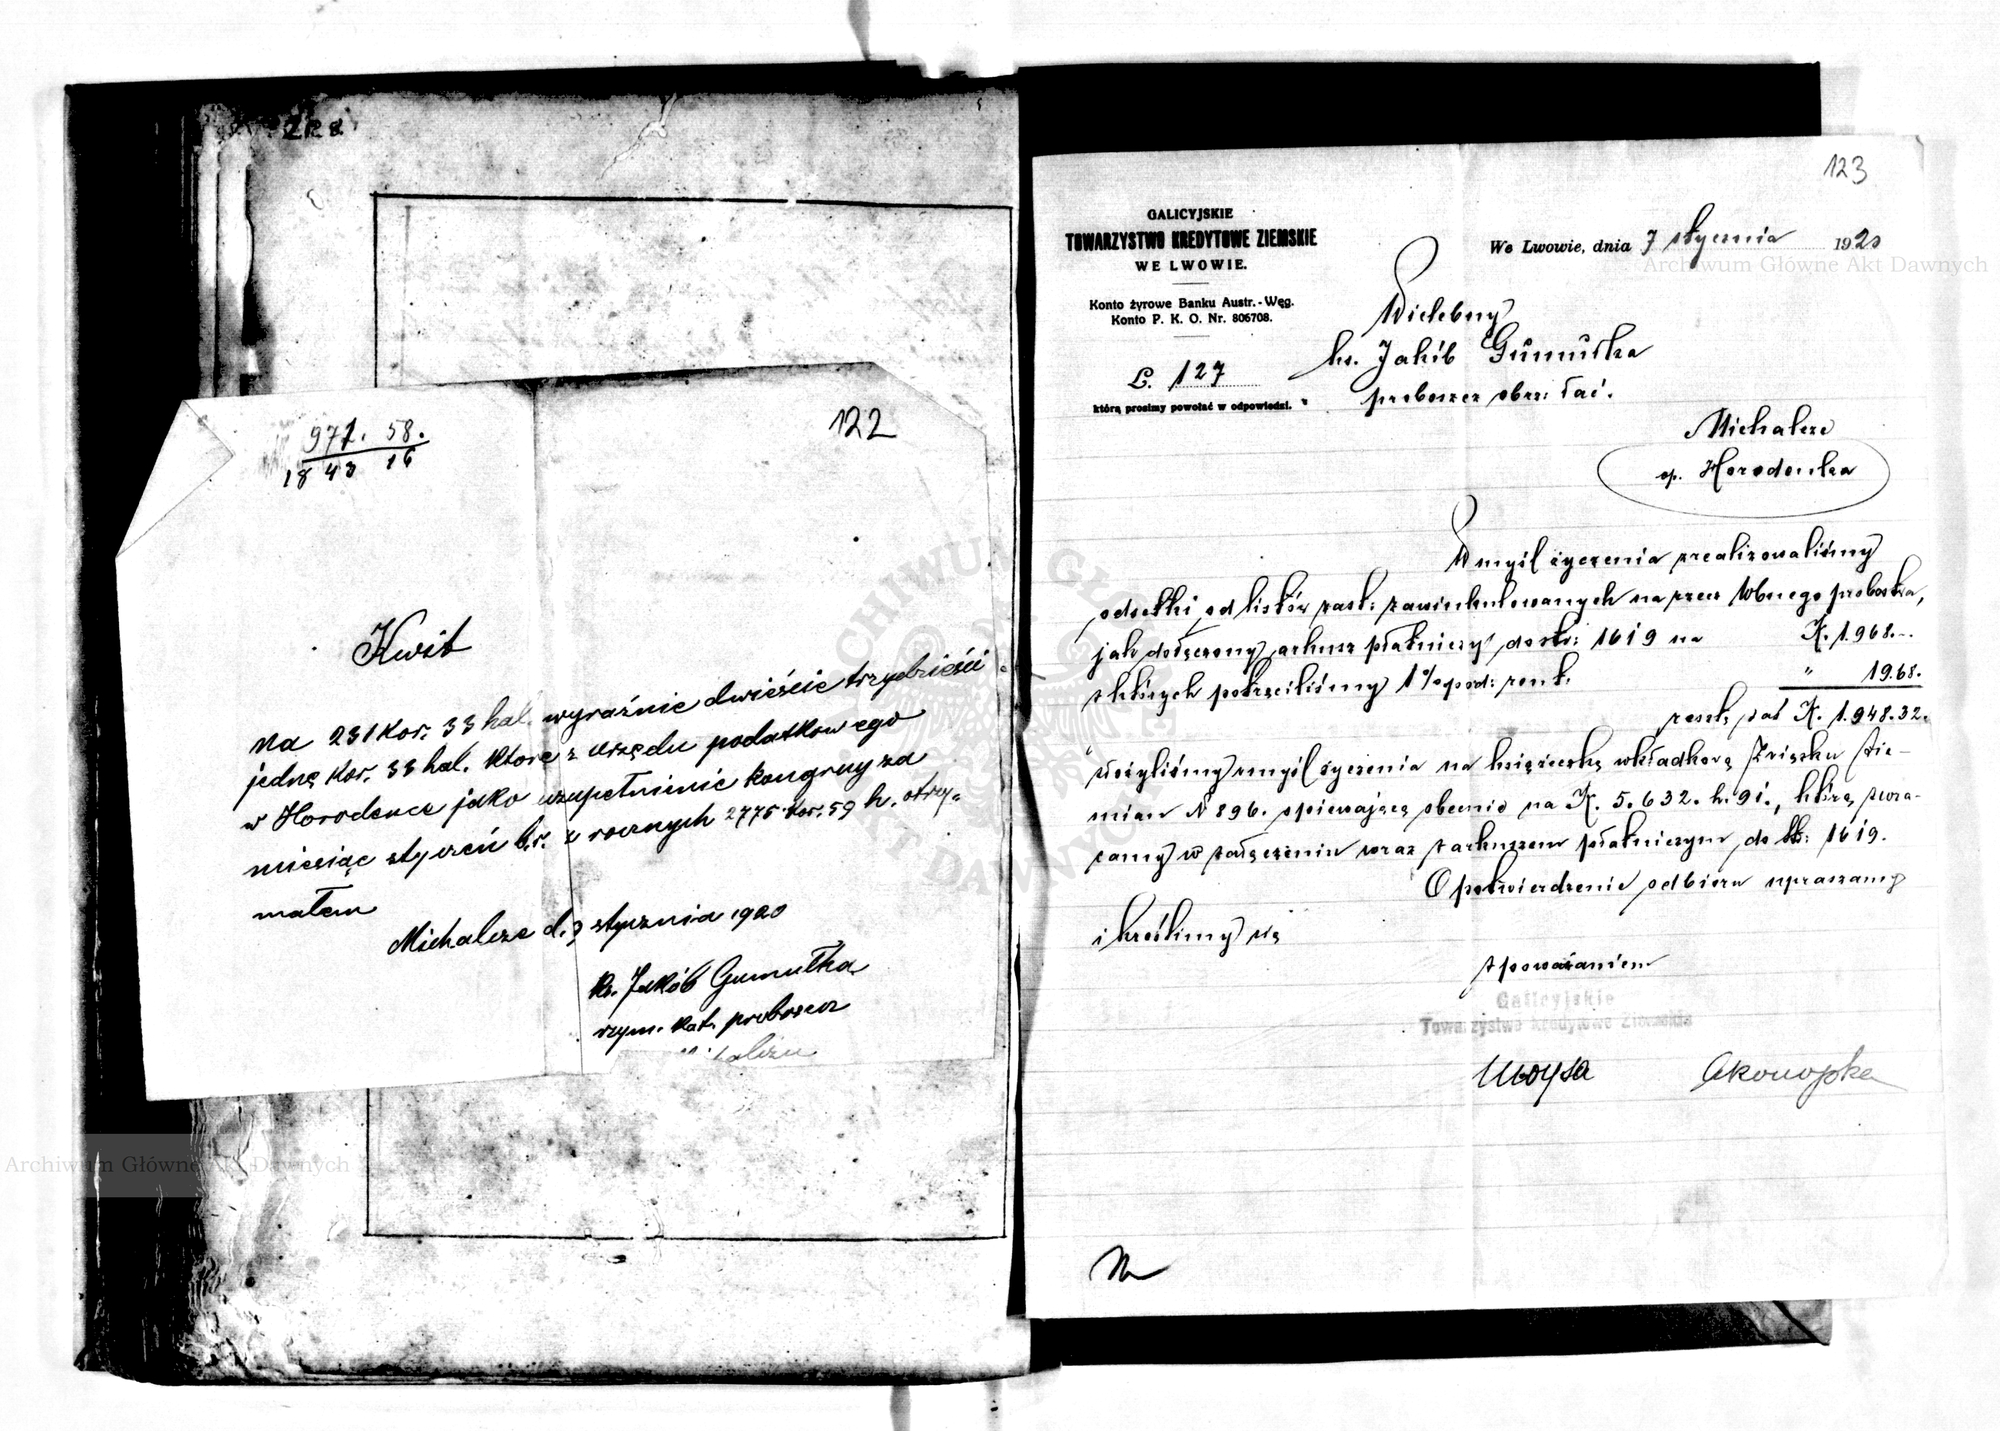 122
971. 58.
18 43 16
Kwit
na 231 Kor. 33 hal. wyraźnie dwieście trzydzieści
jedną Kor. 33 hal. które z urzędu podatkowego
w Horodence jako uzupełnienie kongruy za
miesiąc styczeń b.r. z rocznych 2775 Kor. 59 h. otrzy-
małem
Michalcze d. 2 stycznia 1920
ks. Jakób Gumułka
rzym. kat. proboszcz
123
GALICYJSKIE
TOWARZYSTWO KREDYTOWE ZIEMSKIE
WE LWOWIE.
Konto żyrowe Banku Austr.-Węg.
Konto P. K. O. Nr. 806708.
L. 127
którą prosimy powołać w odpowiedzi.
We Lwowie, dnia 7 stycznia 1920
Wielebny
ks. Jakób Gumułka
proboszcz obrz: łać.
Michalcze
op. Horodenka
W myśl życzenia zrealizowaliśmy
odsetki od listów zast: zawinkulowanych na rzecz Wbnego probostwa,
jak dołączony arkusz płatniczy do str: 1619 na K. 1.968.-.
z których potrąciliśmy 1% pod: rent. " 19.68.
reszt. zaś K. 1.948.32.
włożyliśmy w myśl życzenia na książeczkę wkładkową Związku Zie-
mian N 896. opiewającą obecnie na K. 5.632. h. 91., którą zwra-
camy w załączeniu wraz z arkuszem płatniczym do str: 1619.
O potwierdzenie odbioru upraszamy
i kreślimy się
z poważaniem
Galicyjskie
Towarzystwo kredytowe Ziemskie
Archiwum Główne Akt Dawnych
Archiwum Główne Akt Dawnych
ARCHIWUM GŁÓWNE AKT DAWNYCH